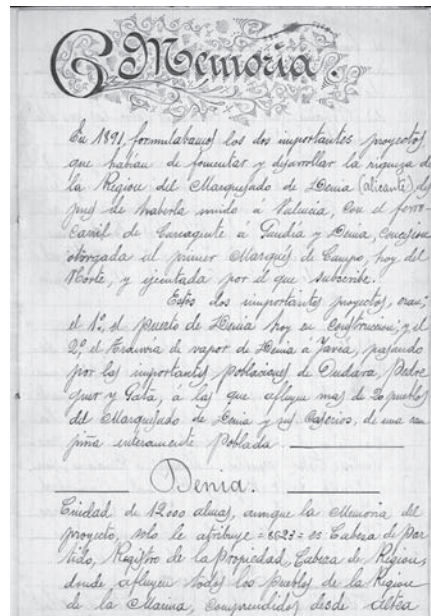 Memoria.
En 1891, formulabamos los dos importantes proyectos
que habian de fomentar y desarrollar la riqueza de
la Region del Marquesado de Denia (Alicante) des
pues de haberla unido á Valencia, con el ferro-
carril de Carcagente á Gandía y Denia, concesion
otorgada al primer Marqués de Campo, hoy del
Norte, y ejecutada por el que subscribe.
Estos dos importantes proyectos, eran;
el 1º, el puerto de Denia hoy en construccion; y el
2º, el Tranvia de vapor de Denia á Javea, pasando
por las importantes poblaciones de Ondara, Pedre
guer y Gata, á las que afluyen mas de 20 pueblos
del Marquesado de Denia y sus Caserios, de una cam
piña enteramente poblada
Denia.
Ciudad de 12.000 almas, aunque la Memoria del
proyecto, solo le atribuye = 8623 = es Cabeza de Par
tido, Registro de la Propiedad, Cabeza de Region,
donde afluyen todos los Pueblos de la Region
de la Marina, comprendidos desde Altea